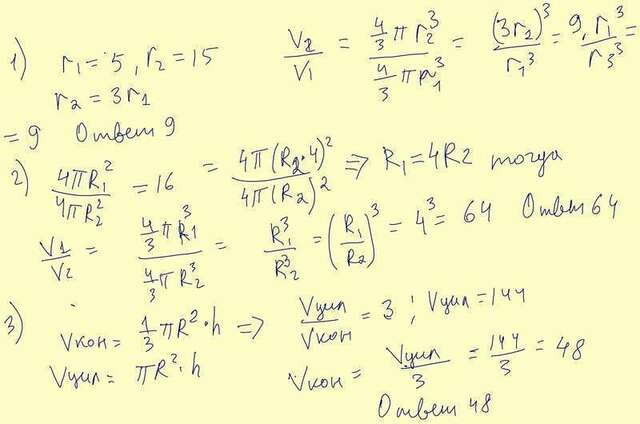 1) r₁ = 5, r₂ = 15 V₂/V₁ = (4/3 π r₂³)/(4/3 π r₁³) = (3r₂)³/r₁³ = 9, r₁³/r₃³ =
r₂ = 3r₁
= 9 Ответ 9
2) 4πR₁²/4πR₂² = 16 = 4π(R₂·4)²/4π(R₂)² => R₁ = 4R2 тогда
V1/V2 = (4/3 πR₁³)/(4/3 πR₂³) = R₁³/R₂³ = (R₁/R₂)³ = 4³ = 64 Ответ 64
3) Vкон = 1/3 πR²·h => Vцил/Vкон = 3; Vцил = 144
Vцил = πR²·h Vкон = Vцил/3 = 144/3 = 48
Ответ 48